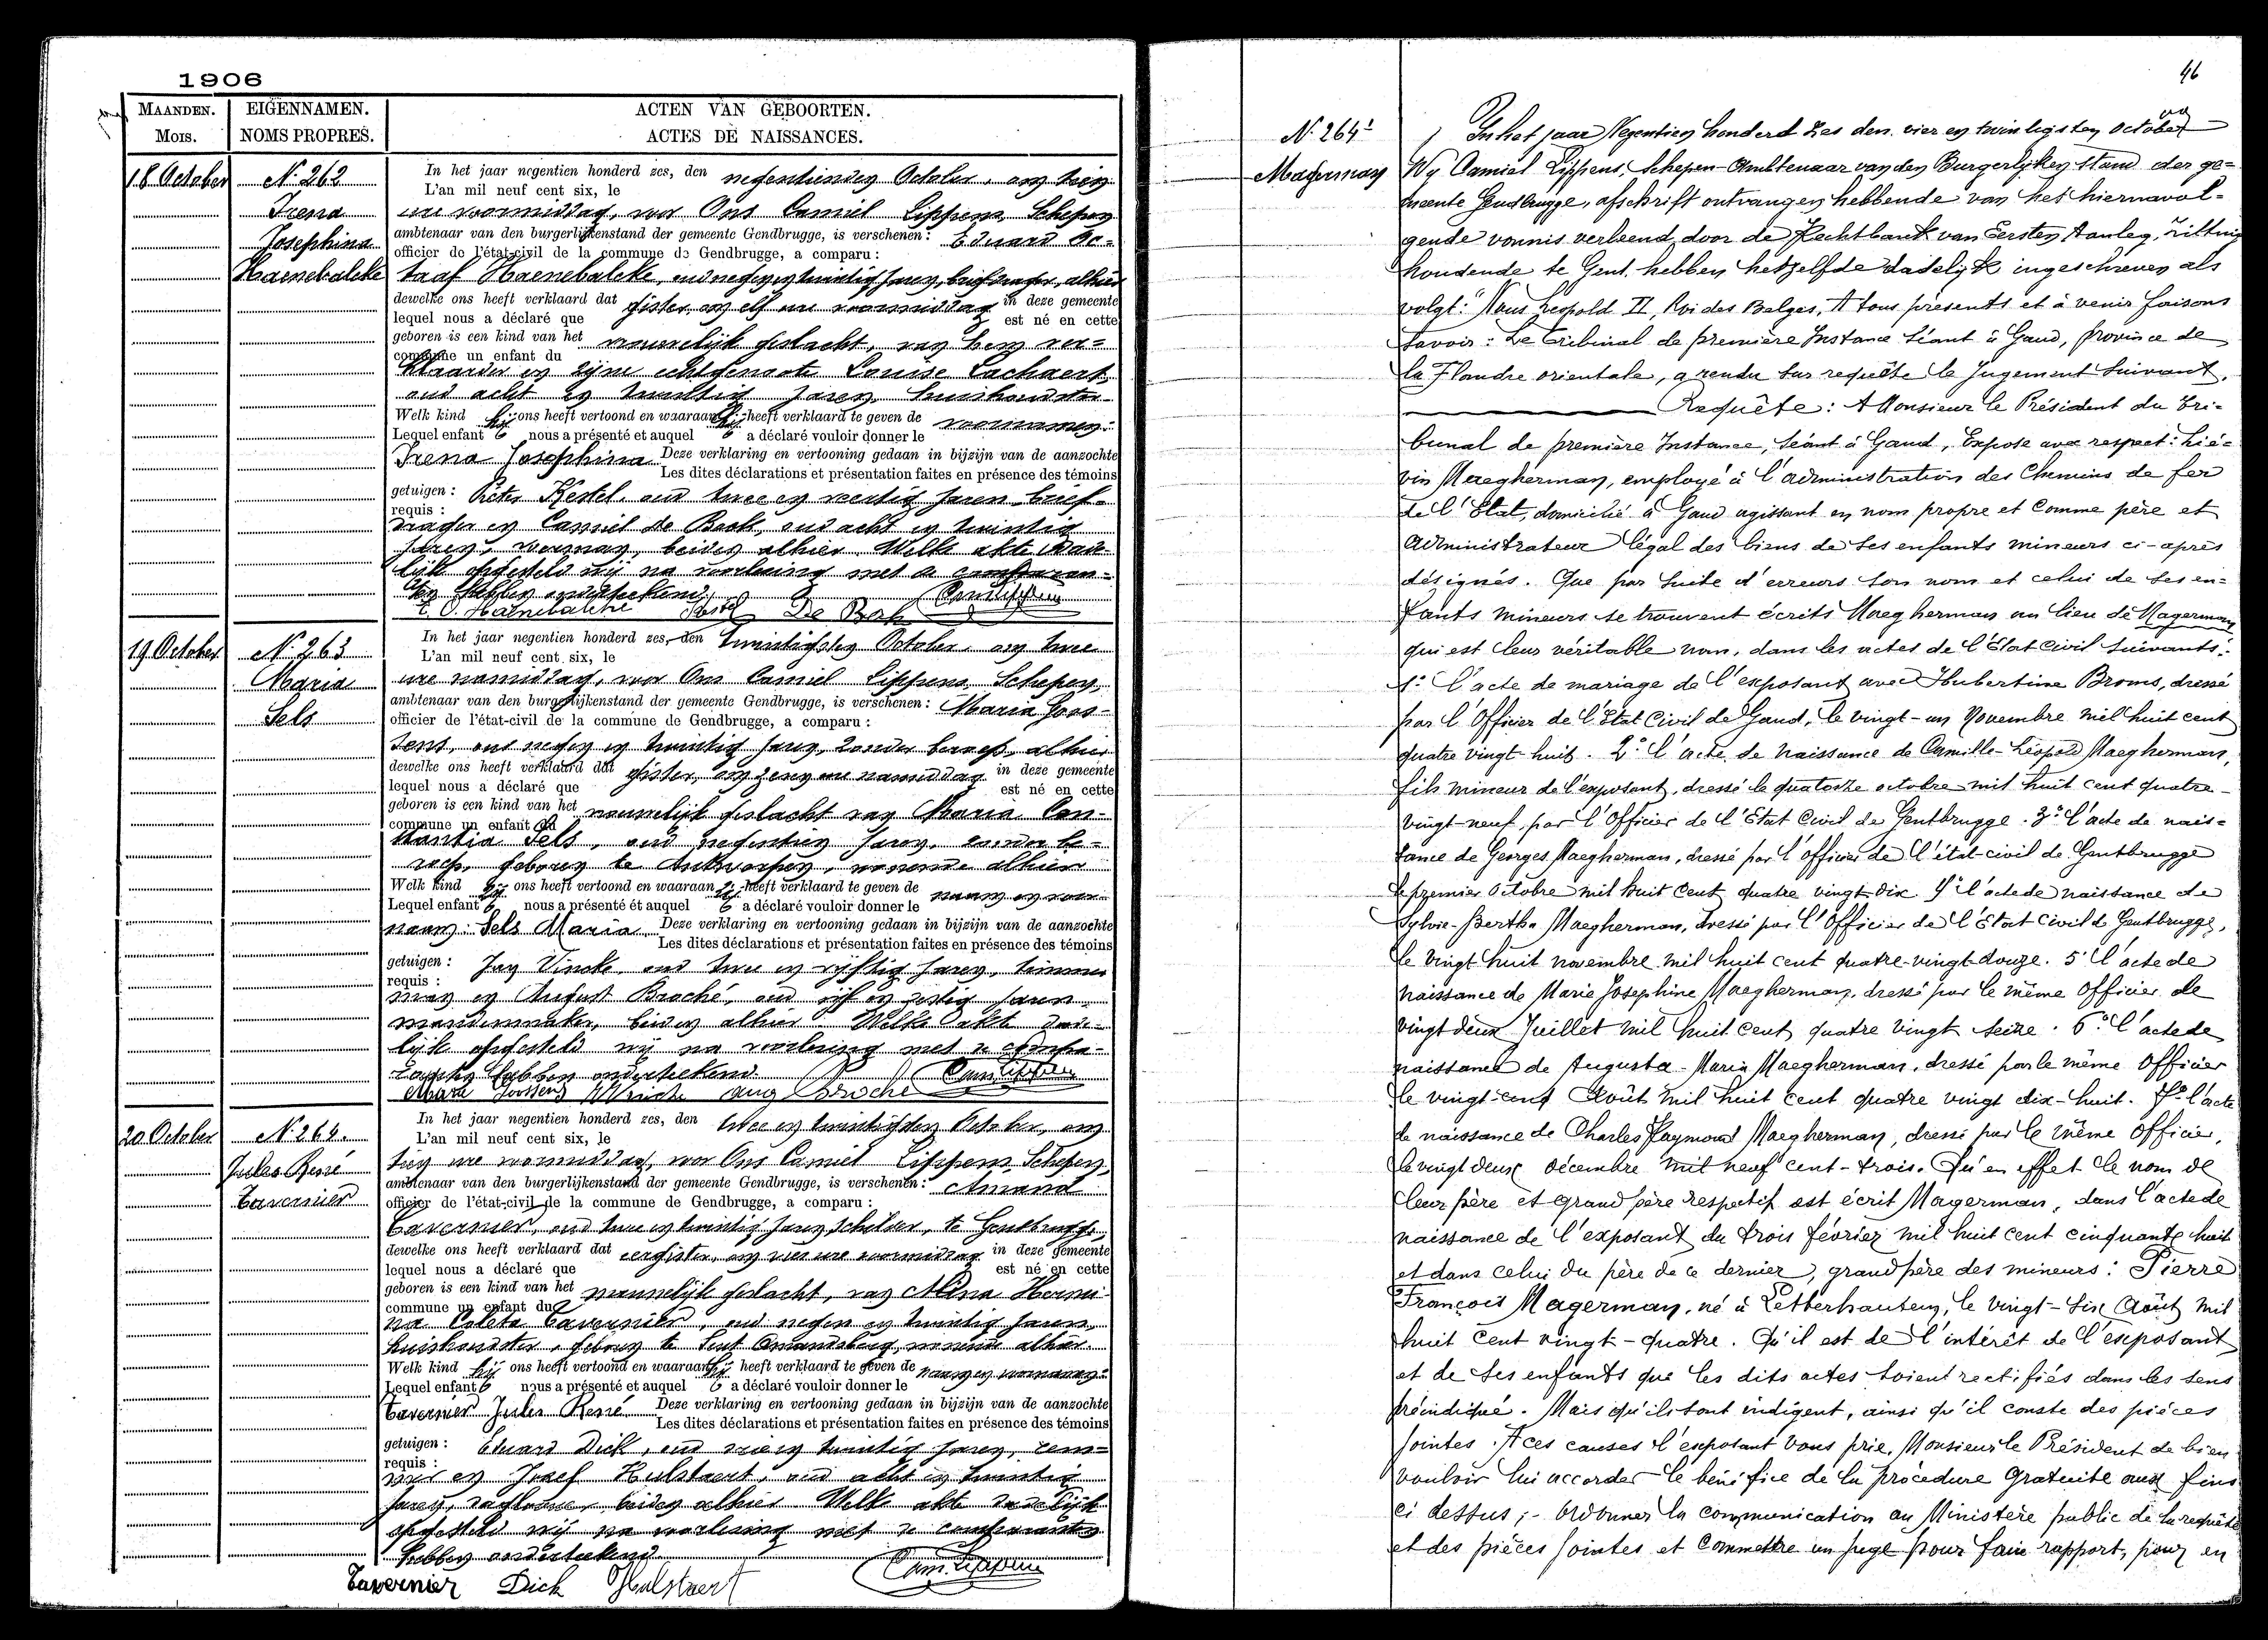 1906
MAANDEN. EIGENNAMEN. ACTEN VAN GEBOORTEN.
MOIS. NOMS PROPRES. ACTES DE NAISSANCES.
18 October
N. 262
Irena
Josephina
Haenebalcke
In het jaar negentien honderd zes, den negentienden October, om tien
L'an mil neuf cent six, le
ure voormiddag, voor Ons Camiel Lippens Schepen
ambtenaar van den burgerlijkenstand der gemeente Gendbrugge, is verschenen: Eduard Oc-
officier de l'état-civil de la commune de Gendbrugge, a comparu:
taaf Haenebalcke, oud negen en twintig jaren, briefdrager, alhier
dewelke ons heeft verklaard dat gister om elf ure voormiddag in deze gemeente
lequel nous a déclaré que est né en cette
geboren is een kind van het vrouwelijk geslacht, van hem ver-
commune un enfant du
klaarder en zijne echtgenoote Louise Lachaert
oud acht en twintig jaren, huishoudster
Welk kind hij ons heeft vertoond en waaraan hij heeft verklaard te geven de voornamen:
Lequel enfant nous a présenté et auquel a déclaré vouloir donner le
Irena Josephina Deze verklaring en vertooning gedaan in bijzijn van de aanzochte
Les dites déclarations et présentation faites en présence des témoins
getuigen: Pieter Kestel, oud twee en veertig jaren brief-
requis:
drager en Camiel De Bock, oud acht en twintig
jaren, voerman, beiden alhier. Welke akte dade-
lijk opgesteld wij na voorlezing met de comparan-
ten hebben onderteekend.
E. O. Haenebalcke Kestel De Bock Cam. Lippens
19 October
N. 263
Maria
Sels
In het jaar negentien honderd zes, den twintigsten October, om twee
L'an mil neuf cent six, le
ure namiddag, voor Ons Camiel Lippens Schepen,
ambtenaar van den burgerlijkenstand der gemeente Gendbrugge, is verschenen: Maria Goos-
officier de l'état-civil de la commune de Gendbrugge, a comparu:
sens, oud negen en twintig jaren, zonder beroep, alhier
dewelke ons heeft verklaard dat gister, om zeven ure namiddag in deze gemeente
lequel nous a déclaré que est né en cette
geboren is een kind van het vrouwelijk geslacht van Maria Con-
commune un enfant du
stantia Sels, oud negentien jaren, zonder be-
roep, geboren te Antwerpen, wonende alhier
Welk kind zij ons heeft vertoond en waaraan zij heeft verklaard te geven de naam en voor-
Lequel enfant nous a présenté et auquel a déclaré vouloir donner le
naam: Sels Maria Deze verklaring en vertooning gedaan in bijzijn van de aanzochte
Les dites déclarations et présentation faites en présence des témoins
getuigen: Jan Vincke, oud twee en vijftig jaren, timmer
requis:
man en August Broché, oud vijf en zestig jaren,
mandenmaker, beiden alhier Welke akte dade-
lijk opgesteld wij na voorlezing met de compa-
ranten hebben onderteekend.
Maria Goossens Vincke Aug Broché Cam. Lippens
20 October
N. 264.
Jules René
Tavernier
In het jaar negentien honderd zes, den twee en twintigsten October, om
L'an mil neuf cent six, le
tien ure voormiddag, voor Ons Camiel Lippens, Schepen,
ambtenaar van den burgerlijkenstand der gemeente Gendbrugge, is verschenen: Amand
officier de l'état-civil de la commune de Gendbrugge, a comparu:
Tavernier, oud twee en twintig jaren schilder, te Gentbrugge,
dewelke ons heeft verklaard dat eergister, om vier ure voormiddag in deze gemeente
lequel nous a déclaré que est né en cette
geboren is een kind van het mannelijk geslacht, van Alina Hermi-
commune un enfant du
na Coleta Tavernier, oud negen en twintig jaren,
huishoudster, geboren te Sint Amandsberg, wonende alhier.
Welk kind hij ons heeft vertoond en waaraan hij heeft verklaard te geven de naam en voornamen:
Lequel enfant nous a présenté et auquel a déclaré vouloir donner le
Tavernier Jules René Deze verklaring en vertooning gedaan in bijzijn van de aanzochte
Les dites déclarations et présentation faites en présence des témoins
getuigen: Eduard Dick, oud vier en twintig jaren,
requis:
en Jozef Hulstaert, oud acht en twintig
jaren, beiden alhier Welke akte dadelijk
opgesteld wij na voorlezing met de comparanten
hebben onderteekend.
Tavernier Dick Hulstaert Cam. Lippens
46
N. 264²
Magerman
In het jaar Negentien honderd zes den vier en twintigsten October
Wij Camiel Lippens, Schepen-Ambtenaar van den Burgerlijken stand der ge-
meente Gendbrugge, afschrift ontvangen hebbende van het hiernavol-
gende vonnis verleend door de Rechtbank van Eersten Aanleg, Zitting
houdende te Gent, hebben hetzelfde dadelijk ingeschreven als
volgt: "Nous Leopold II, Roi des Belges, A tous présents et à venir faisons
savoir: Le Tribunal de première Instance séant à Gand, province de
la Flandre orientale, a rendu sur requête le Jugement suivant.
Requête: A Monsieur le Président du Tri-
bunal de première Instance, séant à Gand, Expose avec respect: Lié-
vin Maegherman, employé à l'administration des Chemins de fer
de l'Etat, domicilié à Gand agissant en nom propre et comme père et
Administrateur légal des biens de ses enfants mineurs ci-après
désignés. Que par suite d'erreurs son nom et celui de ses en-
fants mineurs se trouvent écrits Maegherman au lieu de Magerman
qui est leur véritable nom, dans les actes de l'Etat Civil suivants:
1° l'acte de mariage de l'exposant avec Hubertine Broms, dressé
par l'Officier de l'Etat Civil de Gand, le vingt-un Novembre mil huit cent
quatre vingt-huit. 2° l'acte de naissance de Camille-Léopold Maegherman,
fils mineur de l'exposant, dressé le quatorze octobre mil huit cent quatre-
vingt-neuf, par l'Officier de l'Etat Civil de Gentbrugge. 3° l'acte de nais-
sance de Georges Maegherman, dressé par l'officier de l'état-civil de Gentbrugge
le premier Octobre mil huit cent quatre vingt-dix 4° l'acte de naissance de
Sylvie-Bertha Maegherman, dressé par l'Officier de l'Etat Civil de Gentbrugge,
le vingt huit novembre mil huit cent quatre-vingt-douze. 5° l'acte de
naissance de Marie Josephine Maegherman, dressé par le même Officier le
vingt deux Juillet mil huit cent quatre vingt seize. 6° l'acte de
naissance de Augusta-Maria Maegherman, dressé par le même Officier
le vingt-cinq Août mil huit cent quatre vingt dix-huit. 7° l'acte
de naissance de Charles Raymond Maegherman, dressé par le même Officier,
le vingt deux décembre mil neuf cent-trois. Qu'en effet le nom de
leur père et grand père respectif est écrit Magerman, dans l'acte de
naissance de l'exposant du trois février mil huit cent cinquante huit
et dans celui du père de ce dernier, grand père des mineurs: Pierre
François Magerman, né à Letterhautem, le vingt-six Août mil
huit cent vingt-quatre. Qu'il est de l'intérêt de l'exposant
et de ses enfants que les dits actes soient rectifiés dans les sens
préindiqué. Mais qu'ils sont indigent, ainsi qu'il conste des pièces
jointes. A ces causes l'exposant vous prie, Monsieur le Président de bien
vouloir lui accorder le bénéfice de la procédure Gratuite aux fins
ci dessus; - Ordonner la communication au Ministère public de la requête
et des pièces jointes et Commettre un juge pour faire rapport, pour en